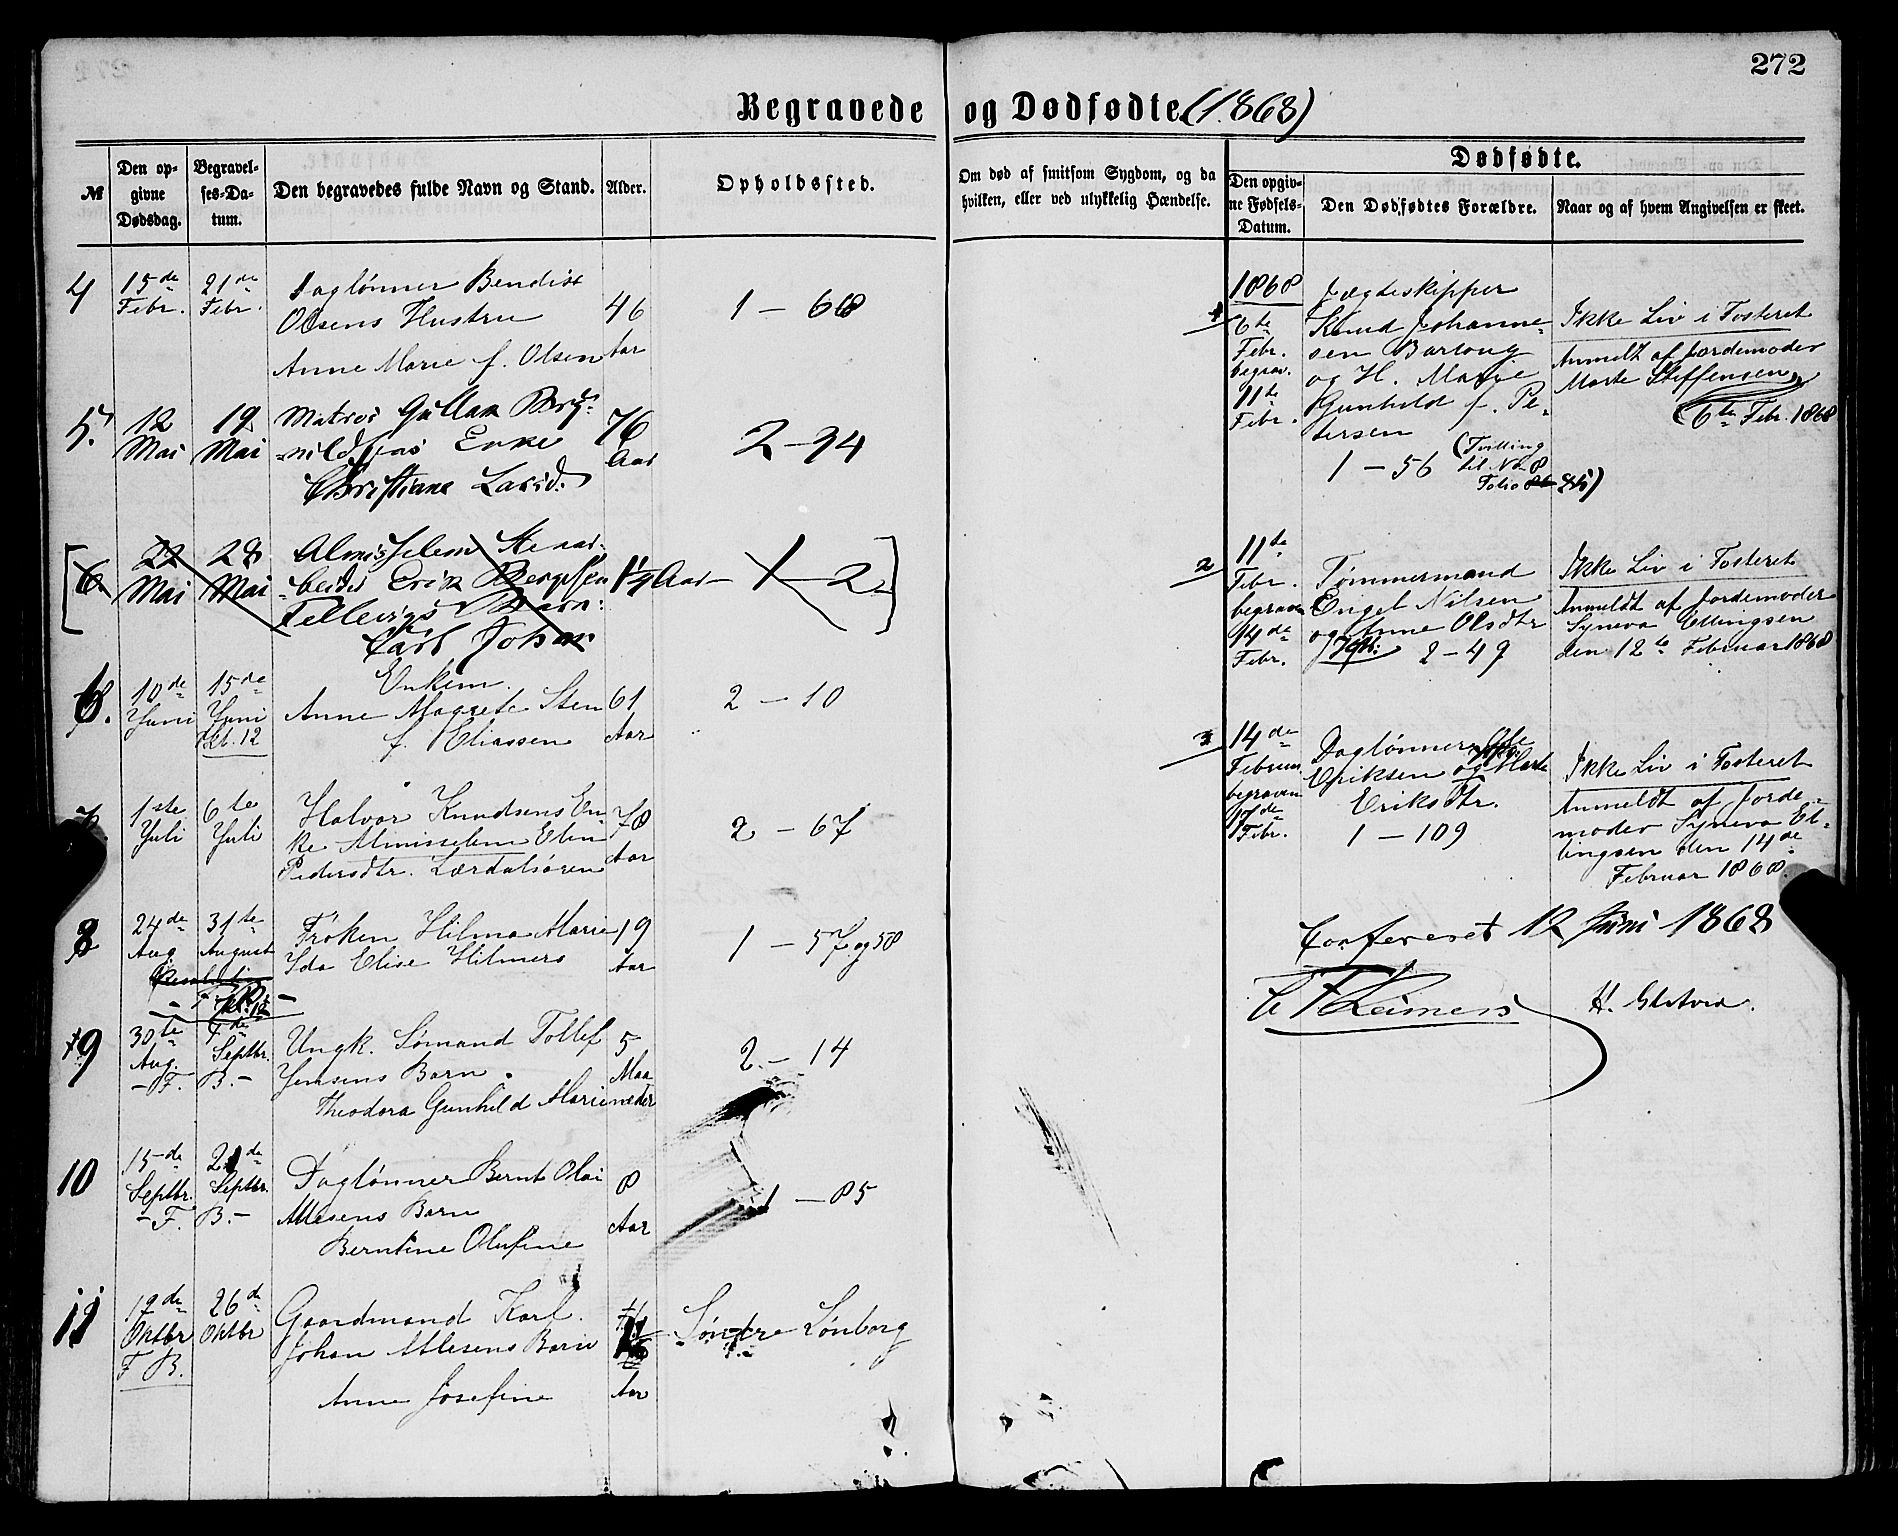 272
Begravede og Dødfødte (1868)
№
Den opgivne Dødsdag.
Begravelses-Datum.
Den begravedes fulde Navn og Stand.
Alder.
Opholdssted.
Om død af smitsom Sygdom, og da hvilken, eller ved ulykkelig Hændelse.
Dødfødte.
Den opgivne Fødsels-Datum.
Den Dødfødtes Forældre.
Naar og af hvem Angivelsen er skeet.
4 15de Febr. 21de Febr. Daglønner Bendix
Olsens Hustru 46
Anne Marie f. Olsen Aar
1 - 68
5. 12 Mai 19 Mai Matros
Enke 76
Christiane Aar
2-94
6. 22 Mai 28 Mai Almisselem
Erik
Barn
Carl Johan
1-2
6. 10de Juni 15de Juni Enkem.
Anne Magrete Sten 61
f. Eliassen Aar
2 - 10
7 1ste Juli 6te Juli Halvor Knudsens En-
ke Almisselem Elen 78
Pedersdtr. Lærdalsøren Aar
2 - 67
8 24de Aug. 31te August Frøken Hilma Marie 19
Ida Elise Hilmers Aar
1 - 57 og 58
9 30te Aug. Septbr. Ungk. Sømand Tollef 5
- F. B. - Jensens Barn Maa
Theodora Gunhild Marie neder
2 - 14
10 15de Septbr. 21de Septbr. Daglønner Bernt Olai 8
- F. B. - Barn Aar
Berntine Olufine
1 - 85
11 Oktbr 26de Oktbr Gaardmand Karl
F B. Johan Barn
Anne Josefine Aar
Søndre Lønborg
1 1868
6te Febr. begrav. 11te Febr.
Jægteskipper
Knud Johanne-
sen
og H. Marie
Gunhild f. Pe-
tersen
1 - 56 (Tvilling
til No 8
Folio
Ikke Liv i Fosteret
Anmeldt af Jordemoder
Marte Steffensen
6te Febr. 1868
2 11te Febr. begraven 14de Febr.
Tømmermand
Engel Nilsen
og Anne Olsdtr
2 - 49
Ikke Liv i Fosteret
Anmeldt af Jordemoder
Syneva Ellingsen
den 12te Februar 1868
3 14de Februar begraven 17de Febr.
Daglønner Ole
Eriksen og Marte
Eriksdtr.
1 - 109
Ikke Liv i Fosteret
Anmeldt af Jorde-
moder Syneva El-
lingsen den 14de
Februar 1868.
Confereret 12 Juni 1868